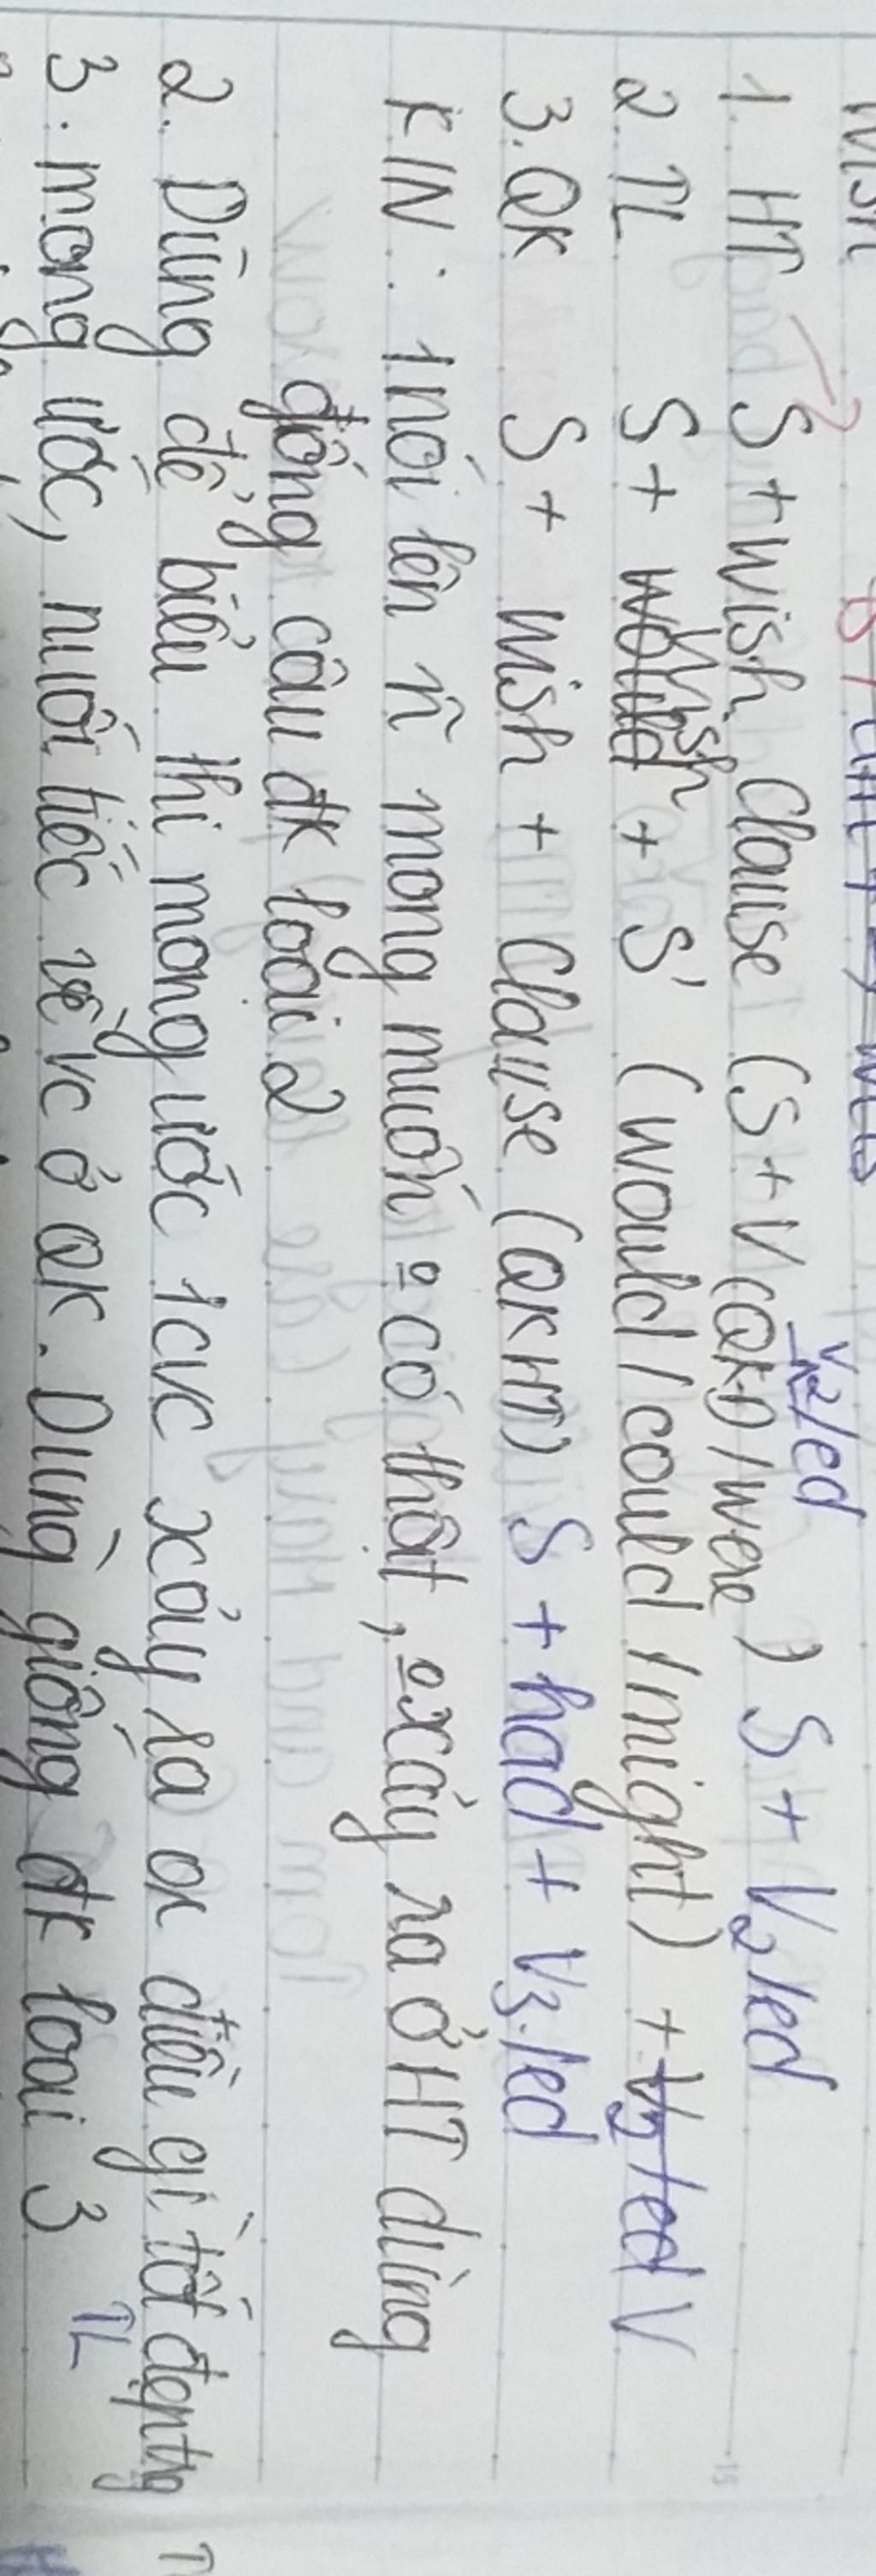 wish
1. HT S + wish clause (S + V (QKĐ) / were) S + V2/ed
V2/ed
2. TL S + wish + S' (would / could / might) + V
3. QK S + wish + clause (QKHT) S + had + V3/ed
K/N: 1 nói lên n~ mong muốn o có thật, o xảy ra ở HT dùng
giống câu đk loại 2
2. Dùng để biểu thị mong ước 1 cvc xảy ra điều gì tốt đẹp
TL
3. mong ước, nuối tiếc về vc ở QK. Dùng giống đk loại 3